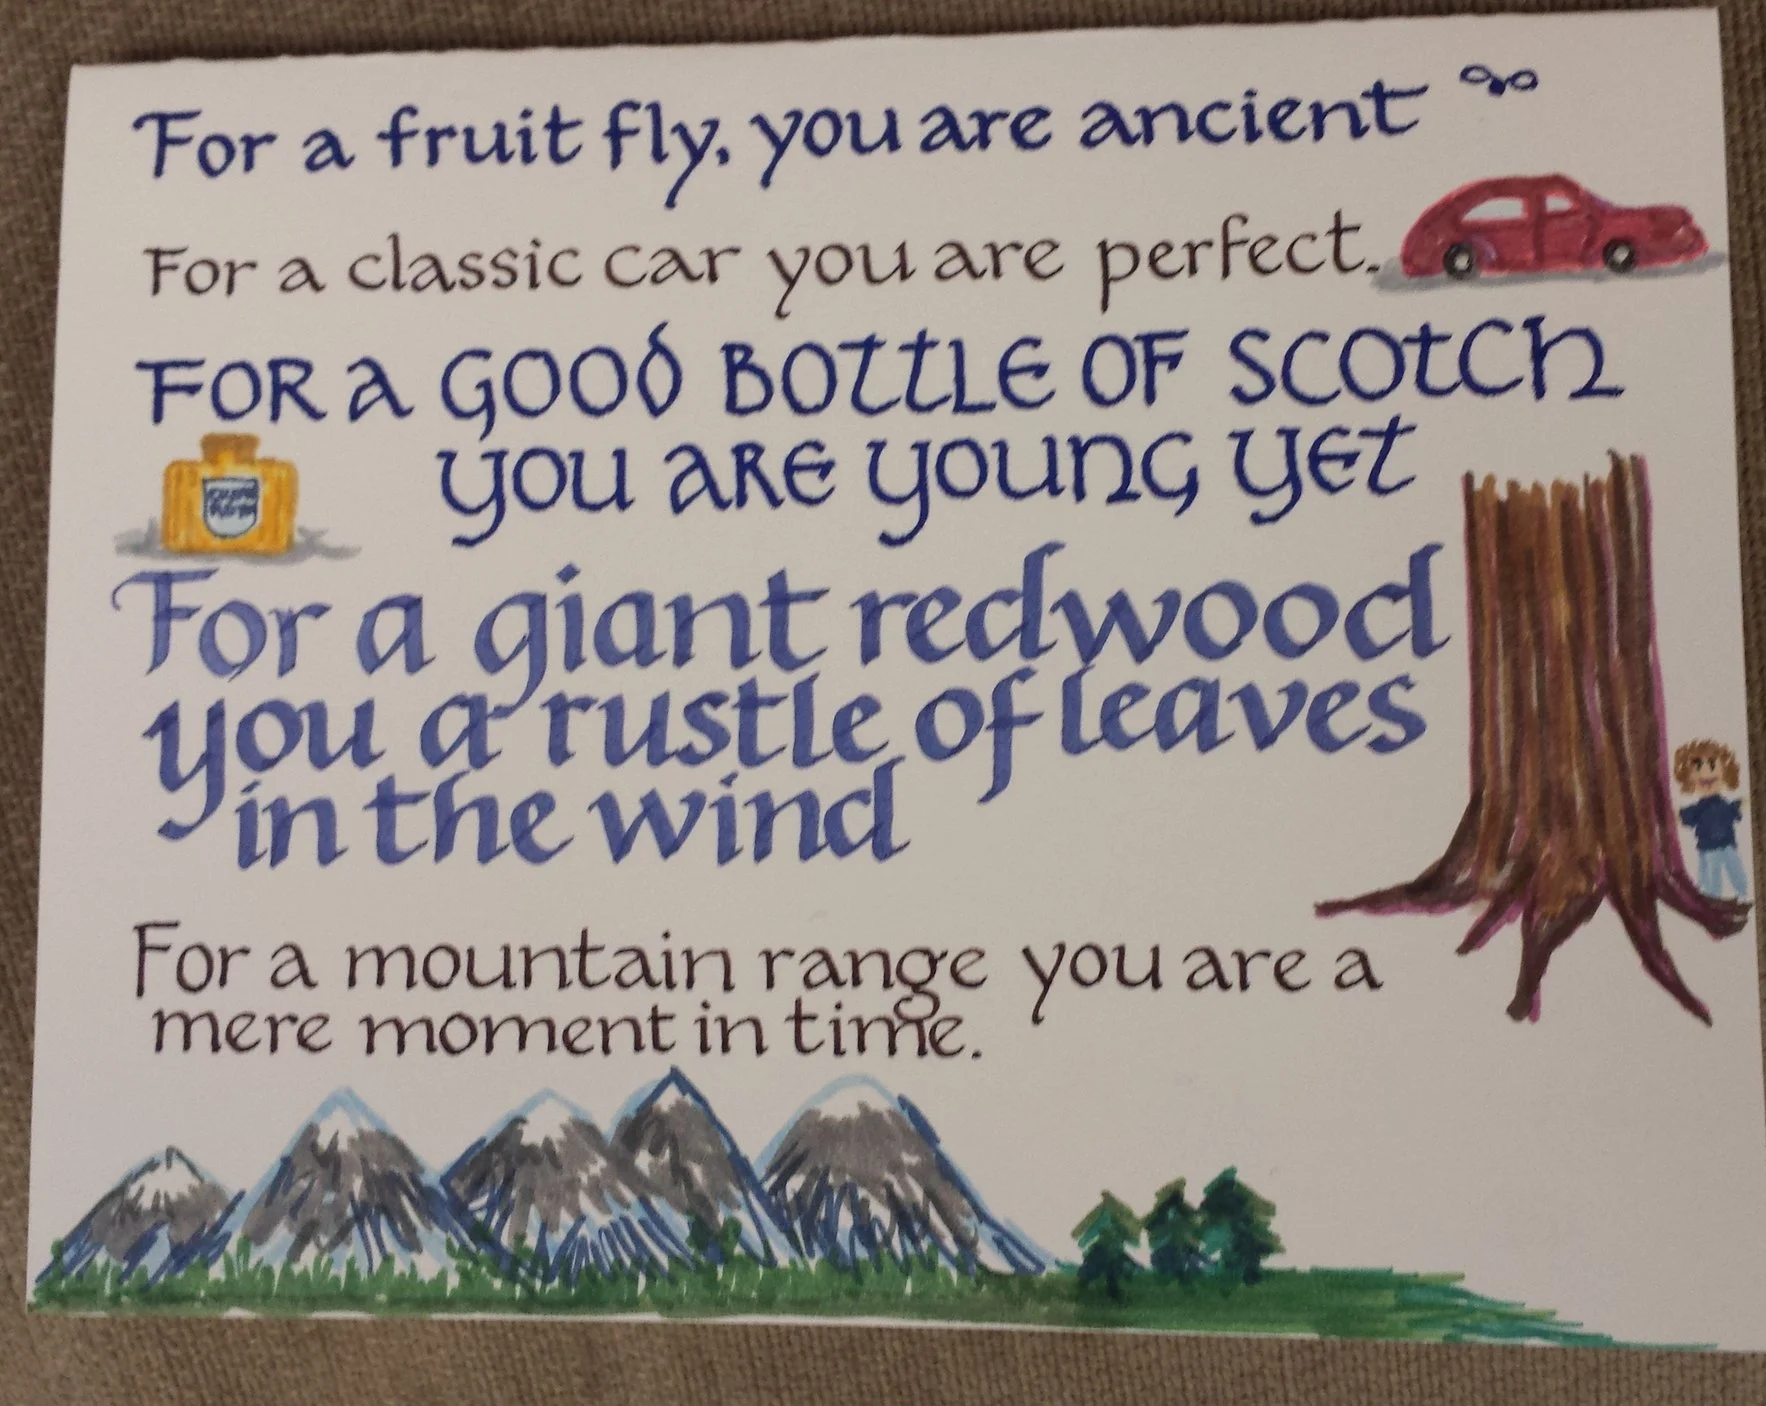 For a fruit fly, you are ancient
For a classic car you are perfect.
FOR a GOOD BOTTLE OF SCOTCh
you aRE younG yET
For a giant redwood
you a rustle of leaves
in the wind
For a mountain range you are a
mere moment in time.